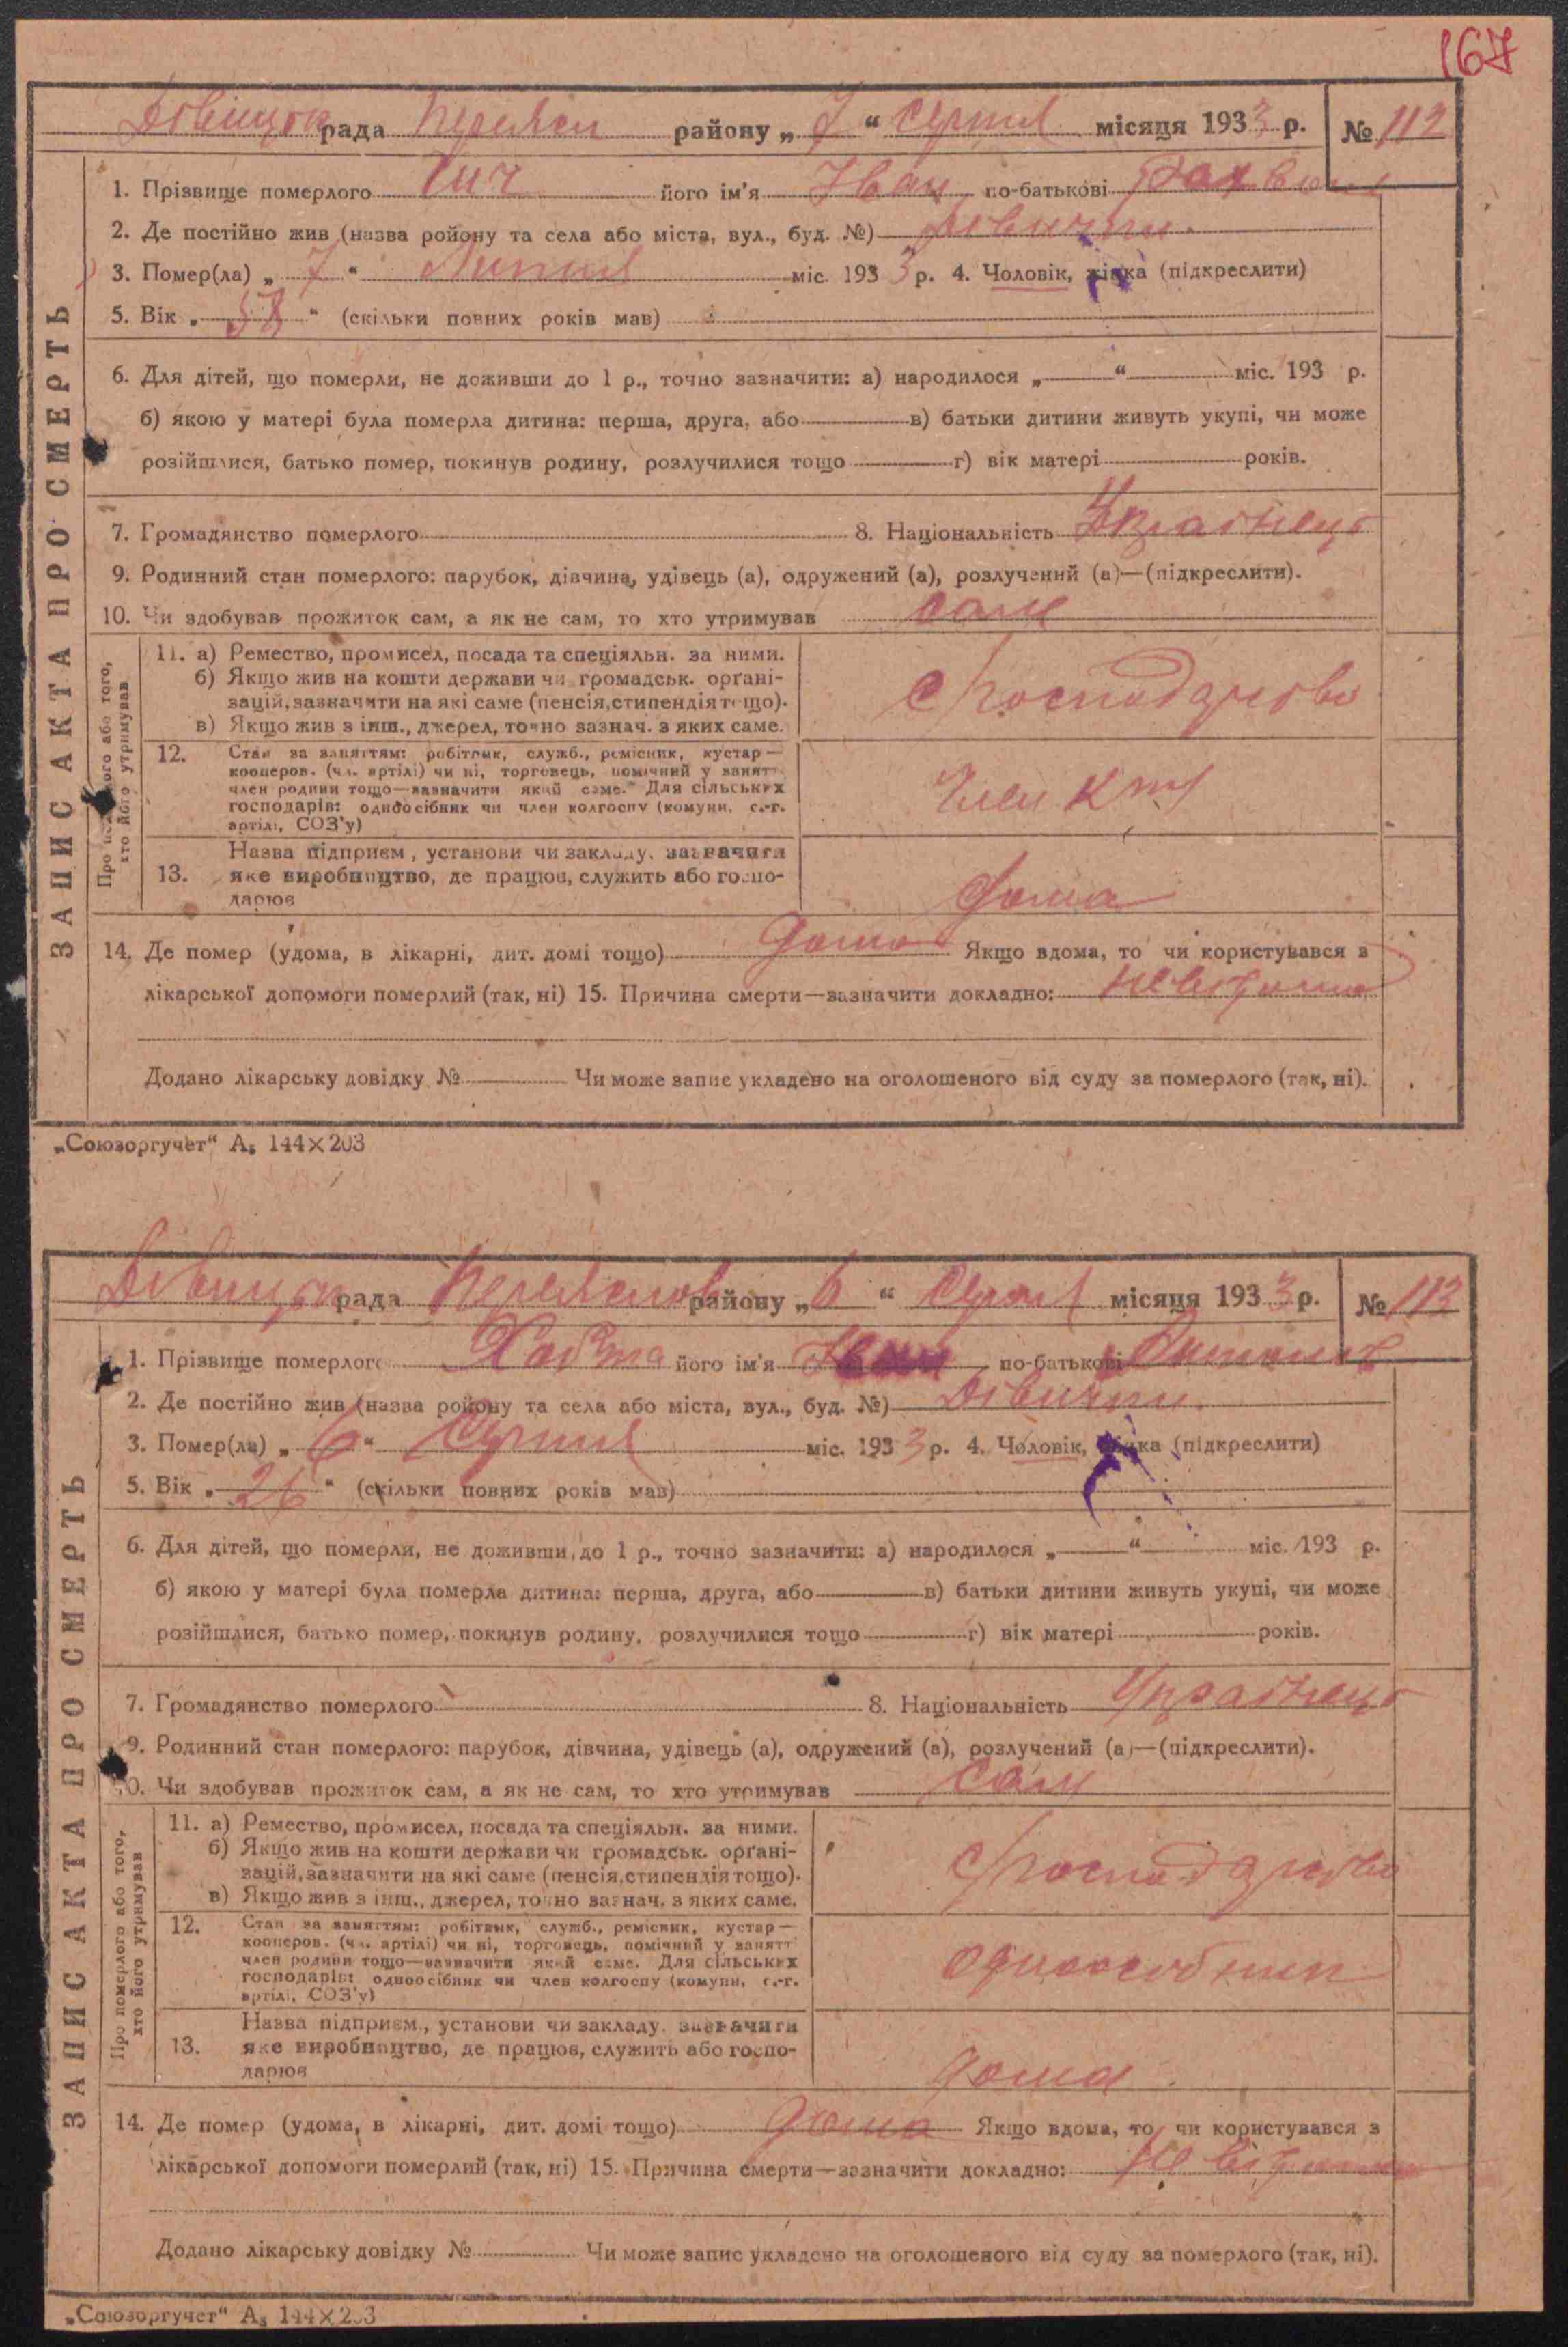 167
Дівицька рада Переясл району „7“ Серпня місяця 1933 р. № 112
1. Прізвище померлого його ім'я Іван по-батькові
2. Де постійно жив (назва ройону та села або міста, вул., буд. №) Дівички.
3. Помер(ла) „7“ Липня міс. 1933 р. 4. Чоловік, жінка (підкреслити)
5. Вік „58“ (скільки повних років мав)
6. Для дітей, що померли, не доживши до 1 р., точно зазначити: а) народилося „ “ міс. 193 р.
б) якою у матері була померла дитина: перша, друга, або в) батьки дитини живуть укупі, чи може
розійшлися, батько помер, покинув родину, розлучилися тощо г) вік матері років.
7. Громадянство померлого 8. Національність Українець
9. Родинний стан померлого: парубок, дівчина, удівець (а), одружений (а), розлучений (а)—(підкреслити).
10. Чи здобував прожиток сам, а як не сам, то хто утримував сам
ЗАПИС АКТА ПРО СМЕРТЬ
Про померлого або того,
хто його утримував
11. а) Ремество, промисел, посада та спеціяльн. за ними.
б) Якщо жив на кошти держави чи громадськ. орґані-
зацій, зазначити на які саме (пенсія, стипендія тощо).
в) Якщо жив з інш., джерел, точно зазнач. з яких саме.
с господарство
12. Стан за заняттям: робітник, служб., ремісник, кустар—
кооперов. (чл. артілі) чи ні, торговець, помічний у занятт
член родини тощо—зазначити який саме. Для сільських
господарів: одноосібник чи член колгоспу (комуни, с.-г.
артілі, СОЗ'у)
Член
13. Назва підприєм., установи чи закладу, зазначити
яке виробництво, де працює, служить або госпо-
дарює
дома
14. Де помер (удома, в лікарні, дит. домі тощо) дома Якщо вдома, то чи користувався з
лікарської допомоги померлий (так, ні) 15. Причина смерти—зазначити докладно: невідомо
Додано лікарську довідку № Чи може запис укладено на оголошеного від суду за померлого (так, ні).
„Союзоргучет“ А₅ 144×203
Дівицька рада Переяслов району „6“ Серпня місяця 1933 р. № 113
1. Прізвище померлого його ім'я Іван по-батькові
2. Де постійно жив (назва ройону та села або міста, вул., буд. №) Дівички.
3. Помер(ла) „6“ Серпня міс. 1933 р. 4. Чоловік, жінка (підкреслити)
5. Вік „26“ (скільки повних років мав)
6. Для дітей, що померли, не доживши до 1 р., точно зазначити: а) народилося „ “ міс. 193 р.
б) якою у матері була померла дитина: перша, друга, або в) батьки дитини живуть укупі, чи може
розійшлися, батько помер, покинув родину, розлучилися тощо г) вік матері років.
7. Громадянство померлого 8. Національність Українець
9. Родинний стан померлого: парубок, дівчина, удівець (а), одружений (а), розлучений (а)—(підкреслити).
10. Чи здобував прожиток сам, а як не сам, то хто утримував сам
ЗАПИС АКТА ПРО СМЕРТЬ
Про померлого або того,
хто його утримував
11. а) Ремество, промисел, посада та спеціяльн. за ними.
б) Якщо жив на кошти держави чи громадськ. орґані-
зацій, зазначити на які саме (пенсія, стипендія тощо).
в) Якщо жив з інш., джерел, точно зазнач. з яких саме.
с господарство
12. Стан за заняттям: робітник, служб., ремісник, кустар—
кооперов. (чл. артілі) чи ні, торговець, помічний у занятт
член родини тощо—зазначити який саме. Для сільських
господарів: одноосібник чи член колгоспу (комуни, с.-г.
артілі, СОЗ'у)
одноособник
13. Назва підприєм., установи чи закладу, зазначити
яке виробництво, де працює, служить або госпо-
дарює
дома
14. Де помер (удома, в лікарні, дит. домі тощо) дома Якщо вдома, то чи користувався з
лікарської допомоги померлий (так, ні) 15. Причина смерти—зазначити докладно: невідомо
Додано лікарську довідку № Чи може запис укладено на оголошеного від суду за померлого (так, ні).
„Союзоргучет“ А₅ 144×203